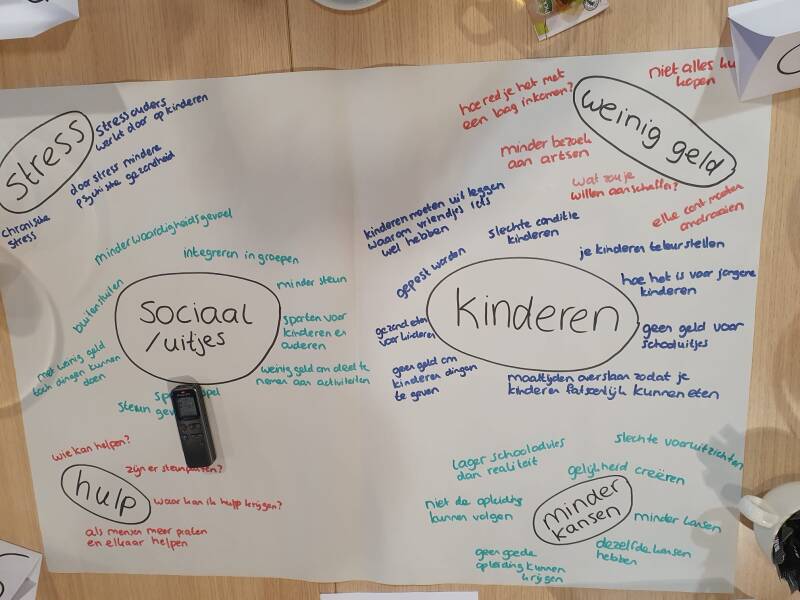 Stress
stress ouders
werkt door op kinderen
door stress mindere
psychische gezondheid
chronische
stress
weinig geld
niet alles
kopen
hoe red je het met
een laag inkomen?
minder bezoek
aan artsen
wat zou je
willen aanschaffen?
elke cent moeten
omdraaien
Sociaal
/uitjes
minderwaardigheidsgevoel
integreren in groepen
buitensluiten
minder steun
sporten voor
kinderen en
ouderen
weinig geld om deel te
nemen aan activiteiten
met weinig geld
toch dingen kunnen
doen
steun
kinderen
kinderen moeten uit leggen
waarom vriendjes iets
wel hebben
slechte conditie
kinderen
gepest worden
je kinderen teleurstellen
hoe het is voor jongere
kinderen
gezond eten
voor kinderen
geen geld voor
schooluitjes
geen geld om
kinderen dingen
te geven
maaltijden overslaan zodat je
kinderen fatsoenlijk kunnen eten
hulp
wie kan helpen?
zijn er
waar kan ik hulp krijgen?
als mensen meer praten
en elkaar helpen
minder
kansen
lager schooladvies
dan realiteit
slechte vooruitzichten
gelijkheid creëren
niet de opleiding
kunnen volgen
minder kansen
dezelfde kansen
hebben
geen goede
opleiding kunnen
krijgen